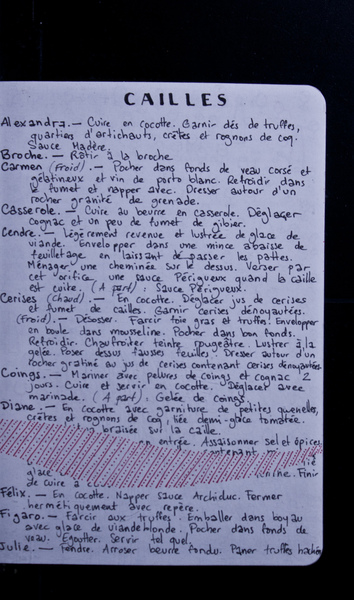 CAILLES
Alexandra. — Cuire en cocotte. Garnir dés de truffes,
quartiers d'artichauts, crêtes et rognons de coq.
Sauce Madère.
Broche. — Rôtir à la broche
Carmen (Froid). — Pocher dans fonds de veau corsé et
gélatineux et vin de porto blanc. Refroidir dans
le fumet et napper avec. Dresser autour d'un
rocher granité de grenade.
Casserole. — Cuire au beurre en casserole. Déglacer
cognac et un peu de fumet de gibier.
Cendre. — Légèrement revenue et lustrée de glace de
viande. Envelopper dans une mince abaisse de
feuilletage en laissant dépasser les pattes.
Ménager une cheminée sur le dessus. Verser par
cet orifice une sauce Périgueux quand la caille
est cuite. (A part) : Sauce Périgueux.
Cerises (Chaud). — En cocotte. Déglacer jus de cerises
et fumet de cailles. Garnir cerises dénoyautées.
(Froid). — Désosser. Farcir foie gras et truffes. Envelopper
en boule dans mousseline. Pocher dans bon fonds.
Refroidir. Chaufroiter teinte rougeâtre. Lustrer à la
gelée. Poser dessus fausses feuilles. Dresser autour d'un
rocher gratiné au jus de cerises contenant cerises dénoyautées.
Coings. — Mariner avec pelures de coings et cognac 2
jours. Cuire et servir en cocotte. Déglacer avec
marinade. (A part) : Gelée de coings.
Diane. — En cocotte avec garniture de petites quenelles,
crêtes et rognons de coq, liée demi-glace tomatée.
braisée sur la caille.
entrée. Assaisonner sel et épices
glace Finir
de cuire à
Félix. — En cocotte. Napper sauce Archiduc. Fermer
hermétiquement avec repère.
Figaro. — Farcir aux truffes. Emballer dans boyau
avec glace de viande blonde. Pocher dans fonds de
veau. Egoutter. Servir tel quel.
Julie. — Fendre. Arroser beurre fondu. Paner truffes hachées